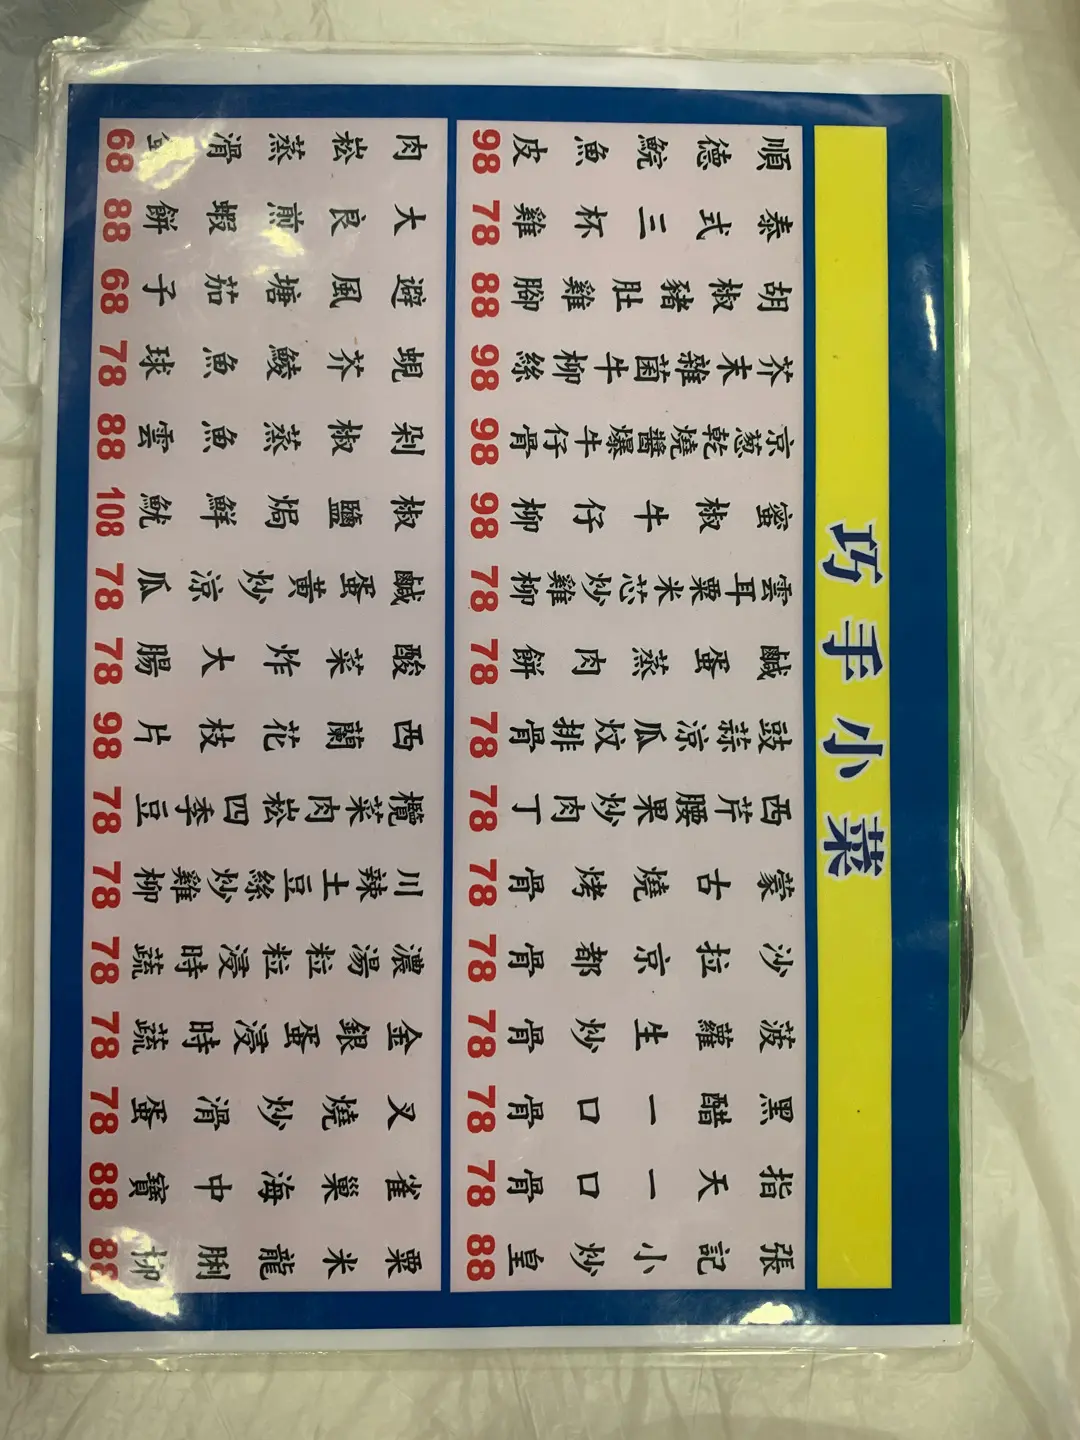 巧手小菜
順德鯇魚皮 98
泰式三杯雞 78
胡椒豬肚雞腳 88
芥末雜菌牛柳絲 98
京葱乾燒醬爆牛仔骨 98
蜜椒牛仔柳 98
雲耳粟米芯炒雞柳 78
鹹蛋蒸肉餅 78
豉蒜涼瓜炆排骨 78
西芹腰果炒肉丁 78
蒙古燒烤骨 78
沙拉京都骨 78
菠蘿生炒骨 78
黑醋一口骨 78
指天一口骨 78
張記小炒皇 88
肉崧蒸滑 68
大良煎蝦餅 88
避風塘茄子 68
蜆芥鯪魚球 78
剁椒蒸魚雲 88
椒鹽焗鮮魷 108
鹹蛋黃炒涼瓜 78
酸菜炸大腸 78
西蘭花枝片 98
欖菜肉崧四季豆 78
川辣土豆絲炒雞柳 78
濃湯粒粒浸時蔬 78
金銀蛋浸時蔬 78
叉燒炒滑蛋 78
雀巢海中寶 88
粟米龍脷柳 88